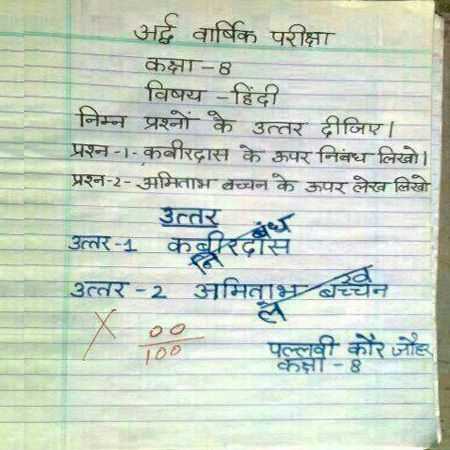 अर्द्ध वार्षिक परीक्षा
कक्षा - 8
विषय - हिंदी
निम्न प्रश्नों के उत्तर दीजिए।
प्रश्न -1- कबीरदास के ऊपर निबंध लिखो।
प्रश्न-2- अमिताभ बच्चन के ऊपर लेख लिखो
उत्तर
उत्तर -1 कबीरदास
निबंध
उत्तर - 2 अमिताभ बच्चन
लेख
X 00/100
पल्लवी कौर जौहर
कक्षा - 8